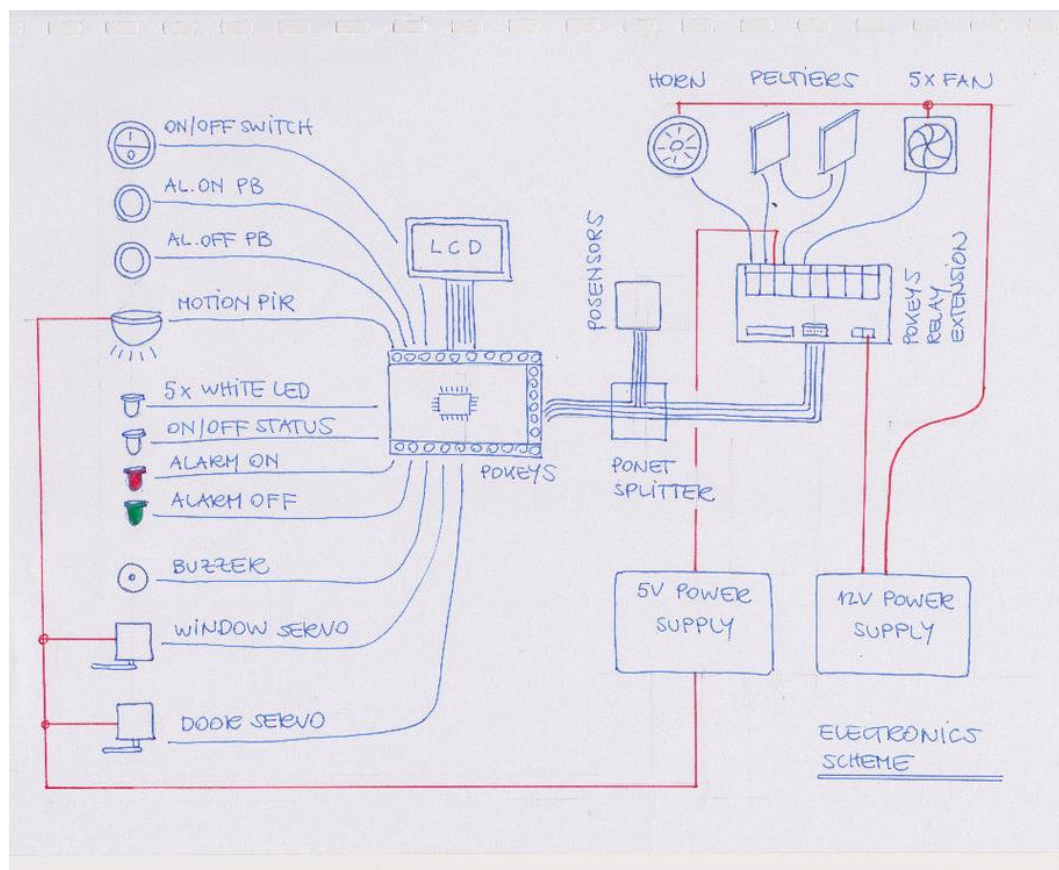 HORN
PELTIERS
5X FAN
ON/OFF SWITCH
AL.ON PB
AL.OFF PB
MOTION PIR
5X WHITE LED
ON/OFF STATUS
ALARM ON
ALARM OFF
BUZZER
WINDOW SERVO
DOOR SERVO
LCD
POKEYS
POSENSORS
PONET
SPLITTER
POKEYS
RELAY
EXTENSION
5V POWER
SUPPLY
12V POWER
SUPPLY
ELECTRONICS
SCHEME